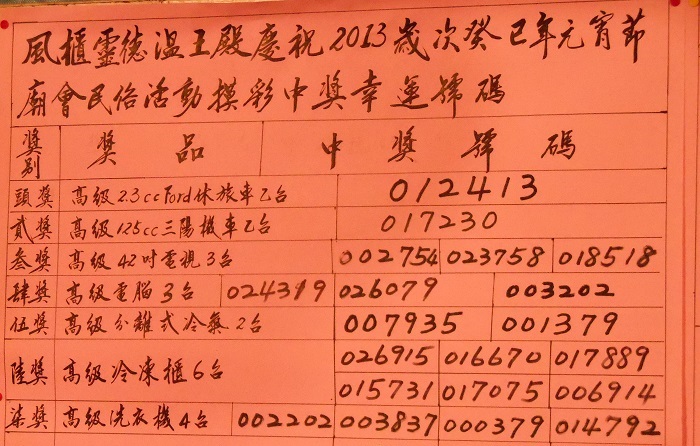 風櫃靈德溫王殿慶祝2013歲次癸巳年元宵節
廟會民俗活動摸彩中獎幸運號碼
獎別 獎品 中獎號碼
頭獎 高級2.3cc Ford休旅車乙台 012413
貳獎 高級125cc三陽機車乙台 017230
叁獎 高級42吋電視3台 002754 023758 018518
肆獎 高級電腦3台 024319 026079 003202
伍獎 高級分離式冷氣2台 007935 001379
陸獎 高級冷凍櫃6台 026915 016670 017889
015731 017075 006914
柒獎 高級洗衣機4台 002202 003837 000379 014792